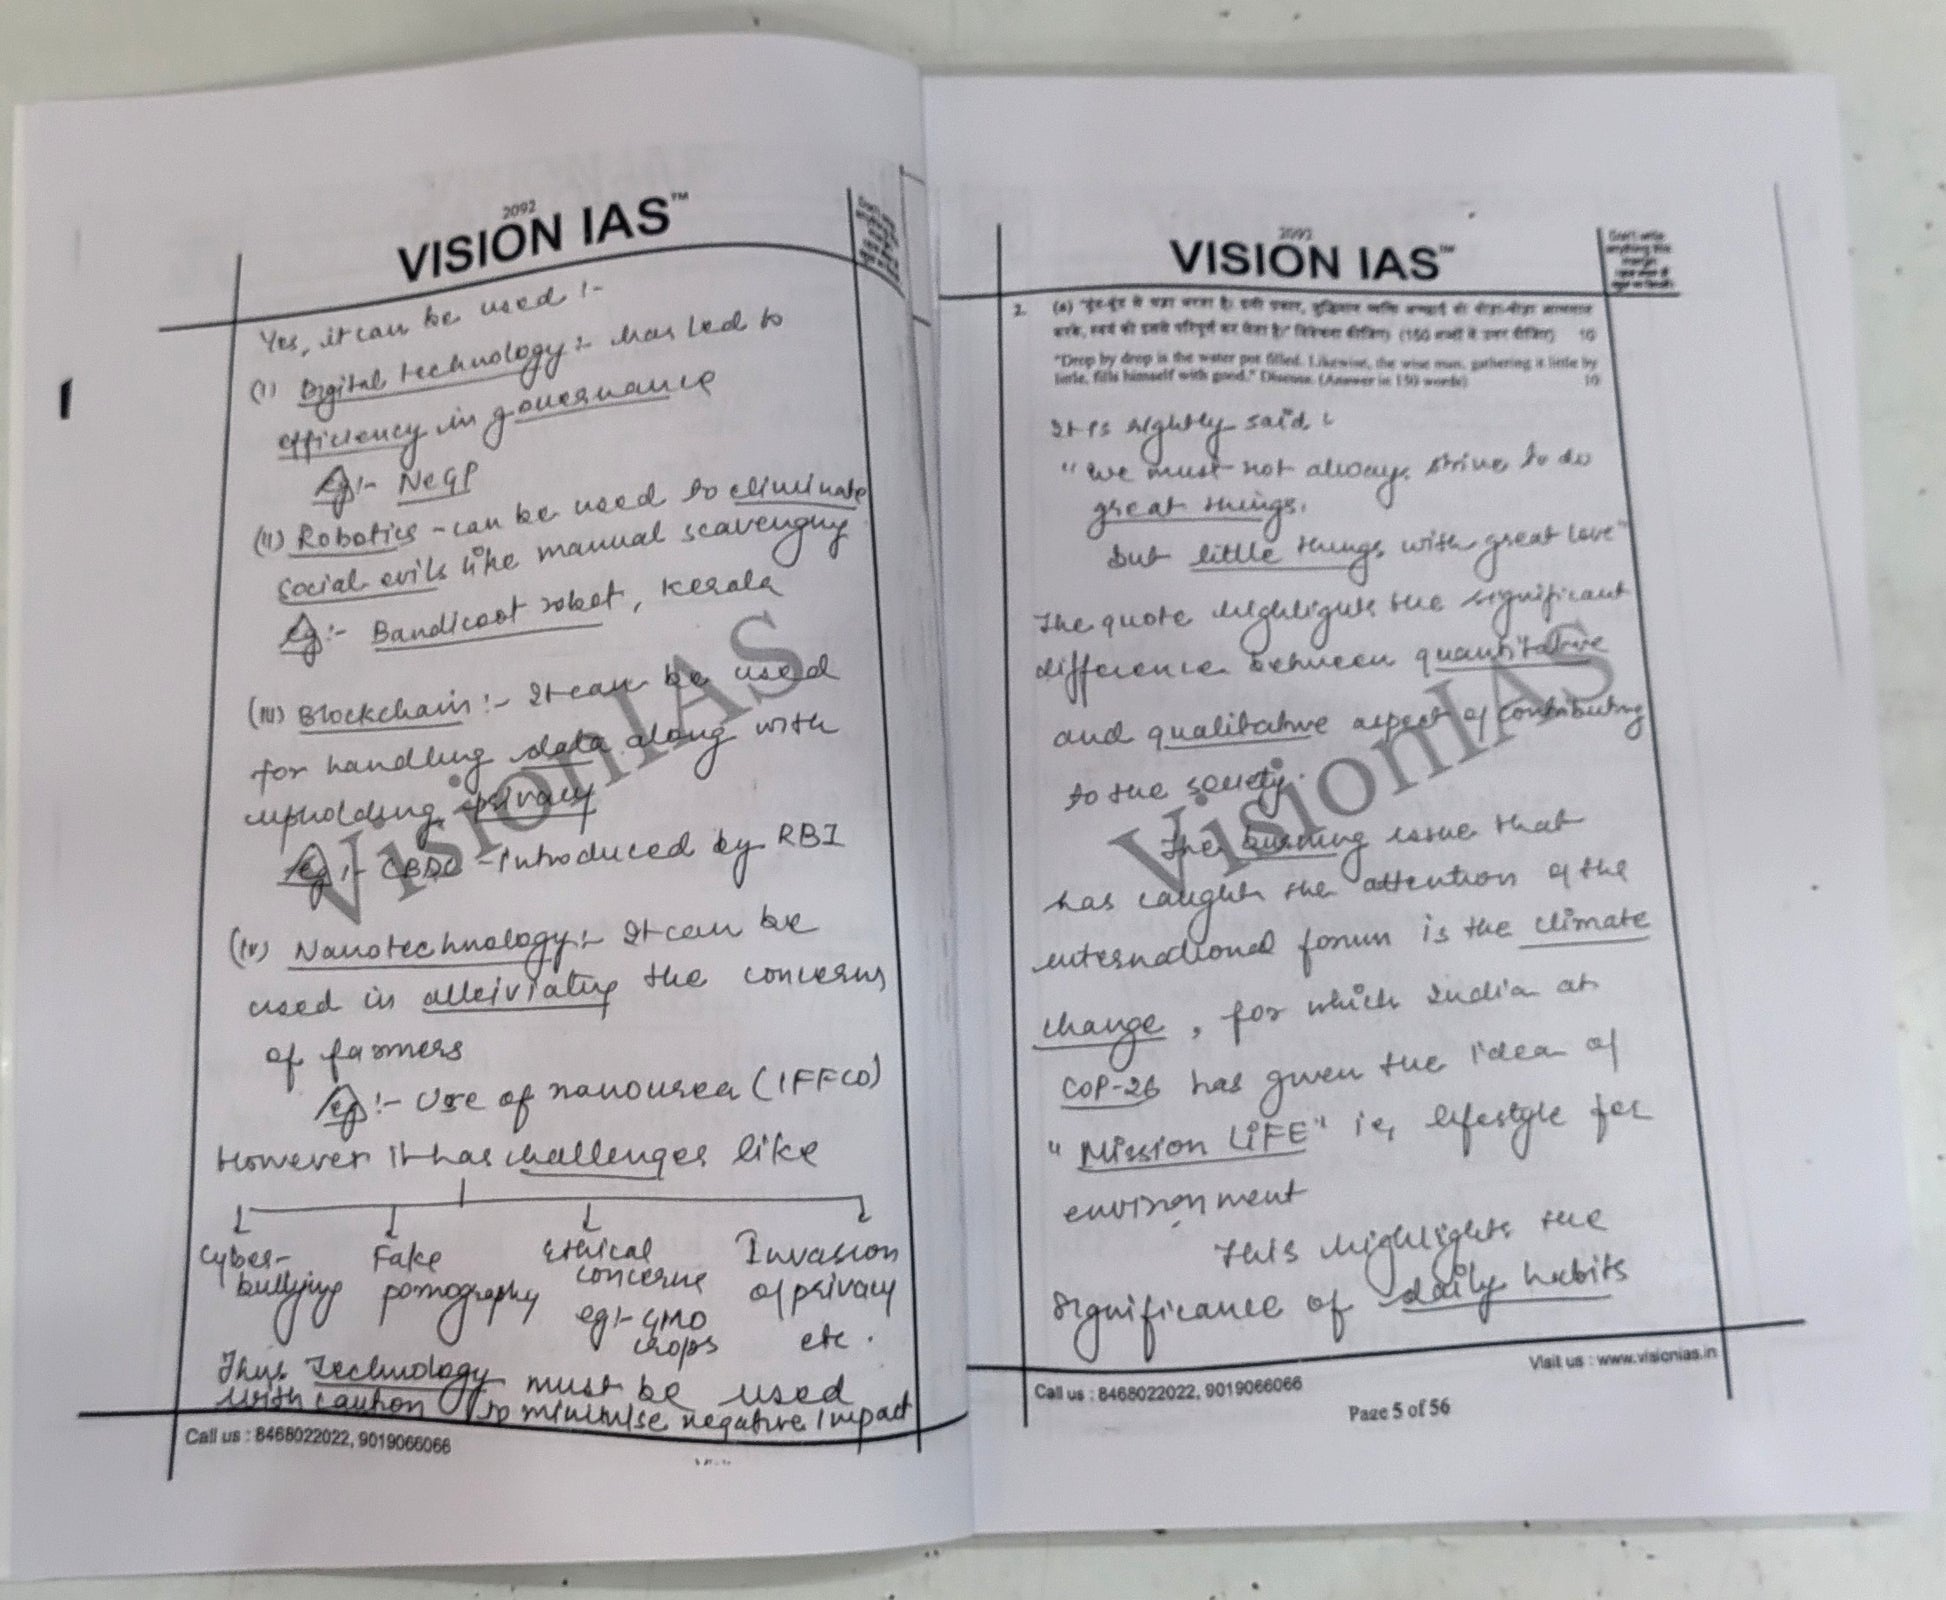 2092
VISION IAS™
Yes, it can be used :-
(i) Digital technology :- has led to
efficiency in governance
Eg :- NeGP
(ii) Robotics - can be used to eliminate
social evils like manual scavenging
eg :- Bandicoot robot, Kerala
(iii) Blockchain :- It can be used
for handling data along with
upholding privacy
eg :- CBDC - introduced by RBI
(iv) Nanotechnology :- It can be
used in alleiviating the concerns
of farmers
eg :- Use of nanourea (IFFCO)
However it has challenges like
Cyber-bullying
Fake pornography
Ethical concerns eg:- GMO crops
Invasion of privacy etc.
Thus technology must be used
with caution to minimise negative impact
Call us : 8468022022, 9019066066
VisionIAS
2092
VISION IAS™
Don't write anything this margin
2. (a)
(150 शब्दों में उत्तर दीजिए) 10
"Drop by drop is the water pot filled. Likewise, the wise man, gathering it little by
little, fills himself with good." Discuss. (Answer in 150 words) 10
It is rightly said :
"We must not always strive to do
great things,
but little things with great love"
The quote highlights the significant
difference between quantitative
and qualitative aspect of contributing
to the society.
The burning issue that
has caught the attention of the
international forum is the climate
change, for which India at
COP-26 has given the idea of
"Mission LiFE" ie, lifestyle for
environment
This highlights the
significance of daily habits
Visit us : www.visionias.in
Call us : 8468022022, 9019066066
Page 5 of 56
VisionIAS